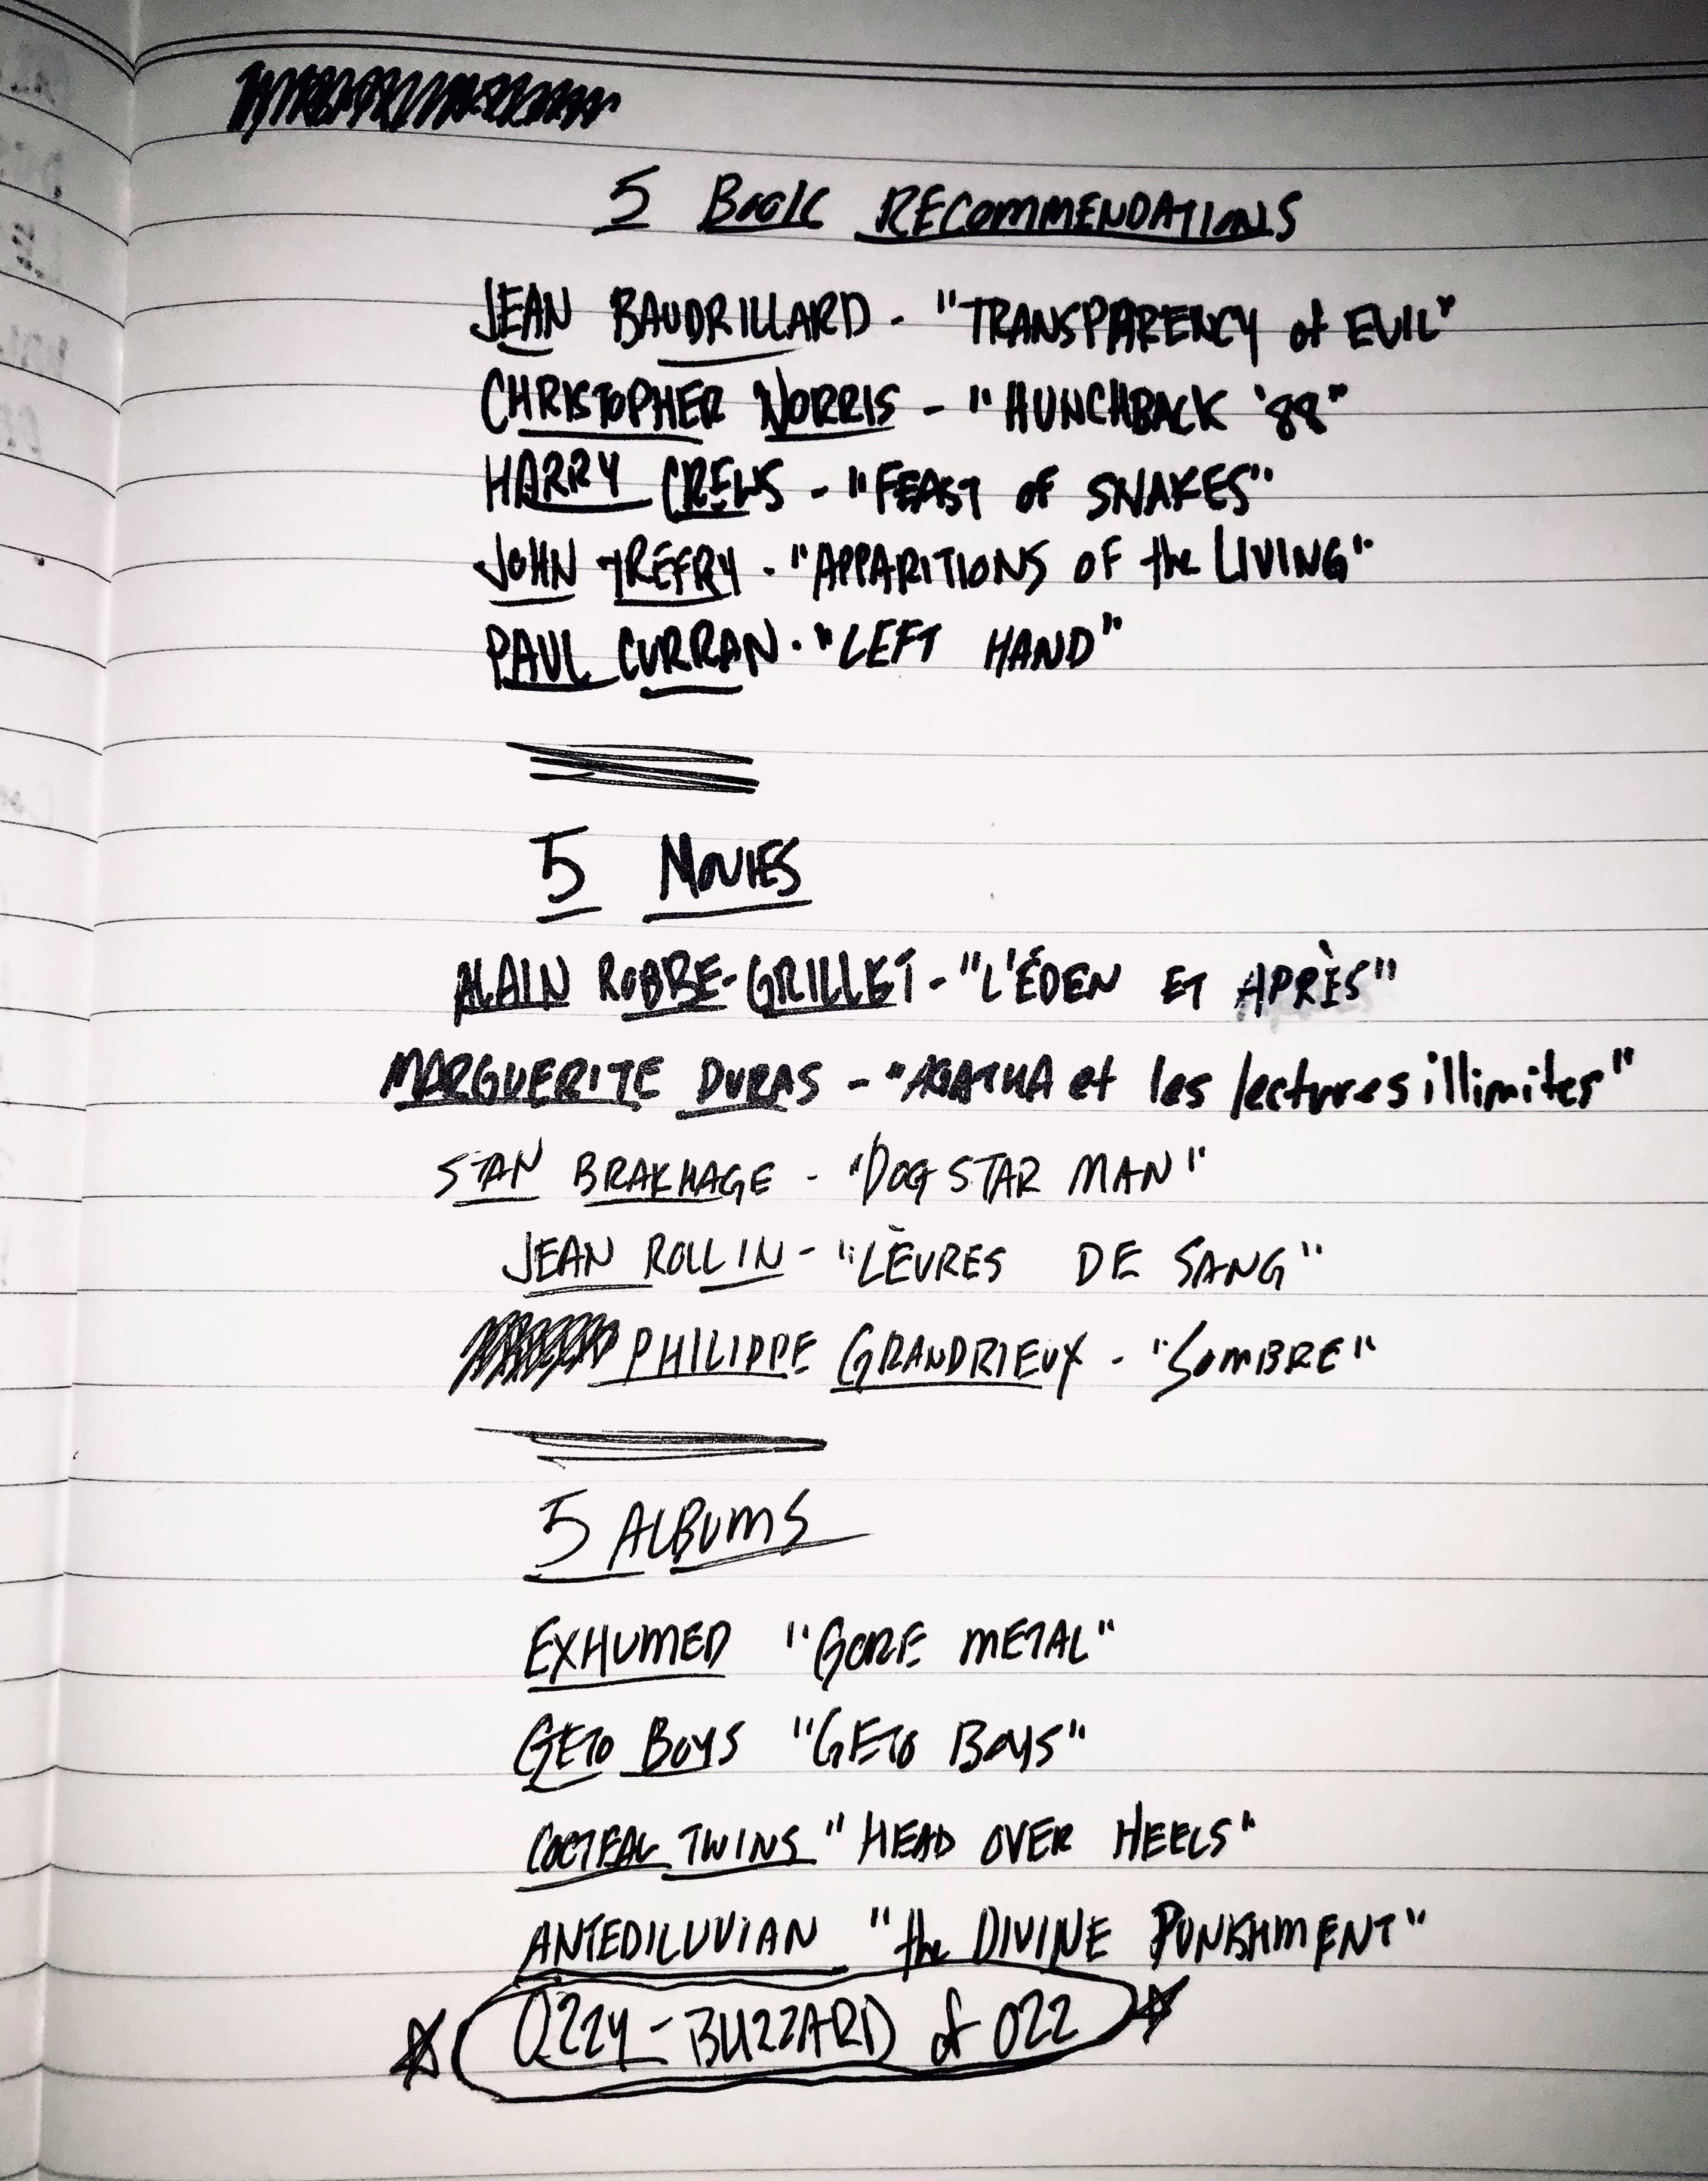 5 Book RECOMMENDATIONS
JEAN BAUDRILLARD - "TRANSPARENCY of EVIL"
CHRISTOPHER NORRIS - "HUNCHBACK '88"
HARRY CREWS - "FEAST OF SNAKES"
JOHN TREFRY - "APPARITIONS OF the LIVING"
PAUL CURRAN - "LEFT HAND"
5 MOVIES
ALAIN ROBBE-GRILLET - "L'ÉDEN ET APRÈS"
MARGUERITE DURAS - "AGATHA et les lectures illimites"
STAN BRAKHAGE - "DOG STAR MAN"
JEAN ROLLIN - "LÈVRES DE SANG"
PHILIPPE GRANDRIEUX - "SOMBRE"
5 ALBUMS
EXHUMED "GORE METAL"
GETO BOYS "GETO BOYS"
COCTEAU TWINS "HEAD OVER HEELS"
ANTEDILUVIAN "the DIVINE PUNISHMENT"
OZZY - BUZZARD of OZZ